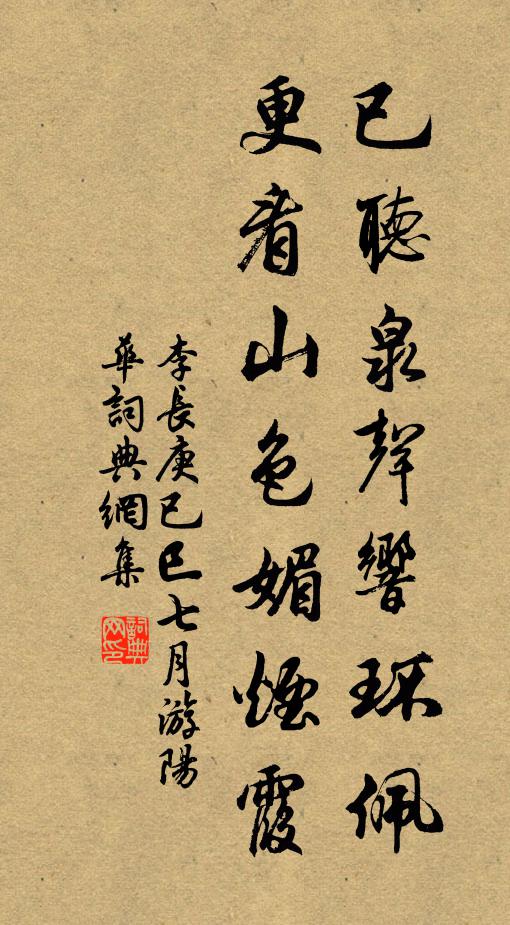 已聽泉聲響环佩
更看山色媚煙霞
李長庚己巳七月游陽
華詞典網集
詞典
网印